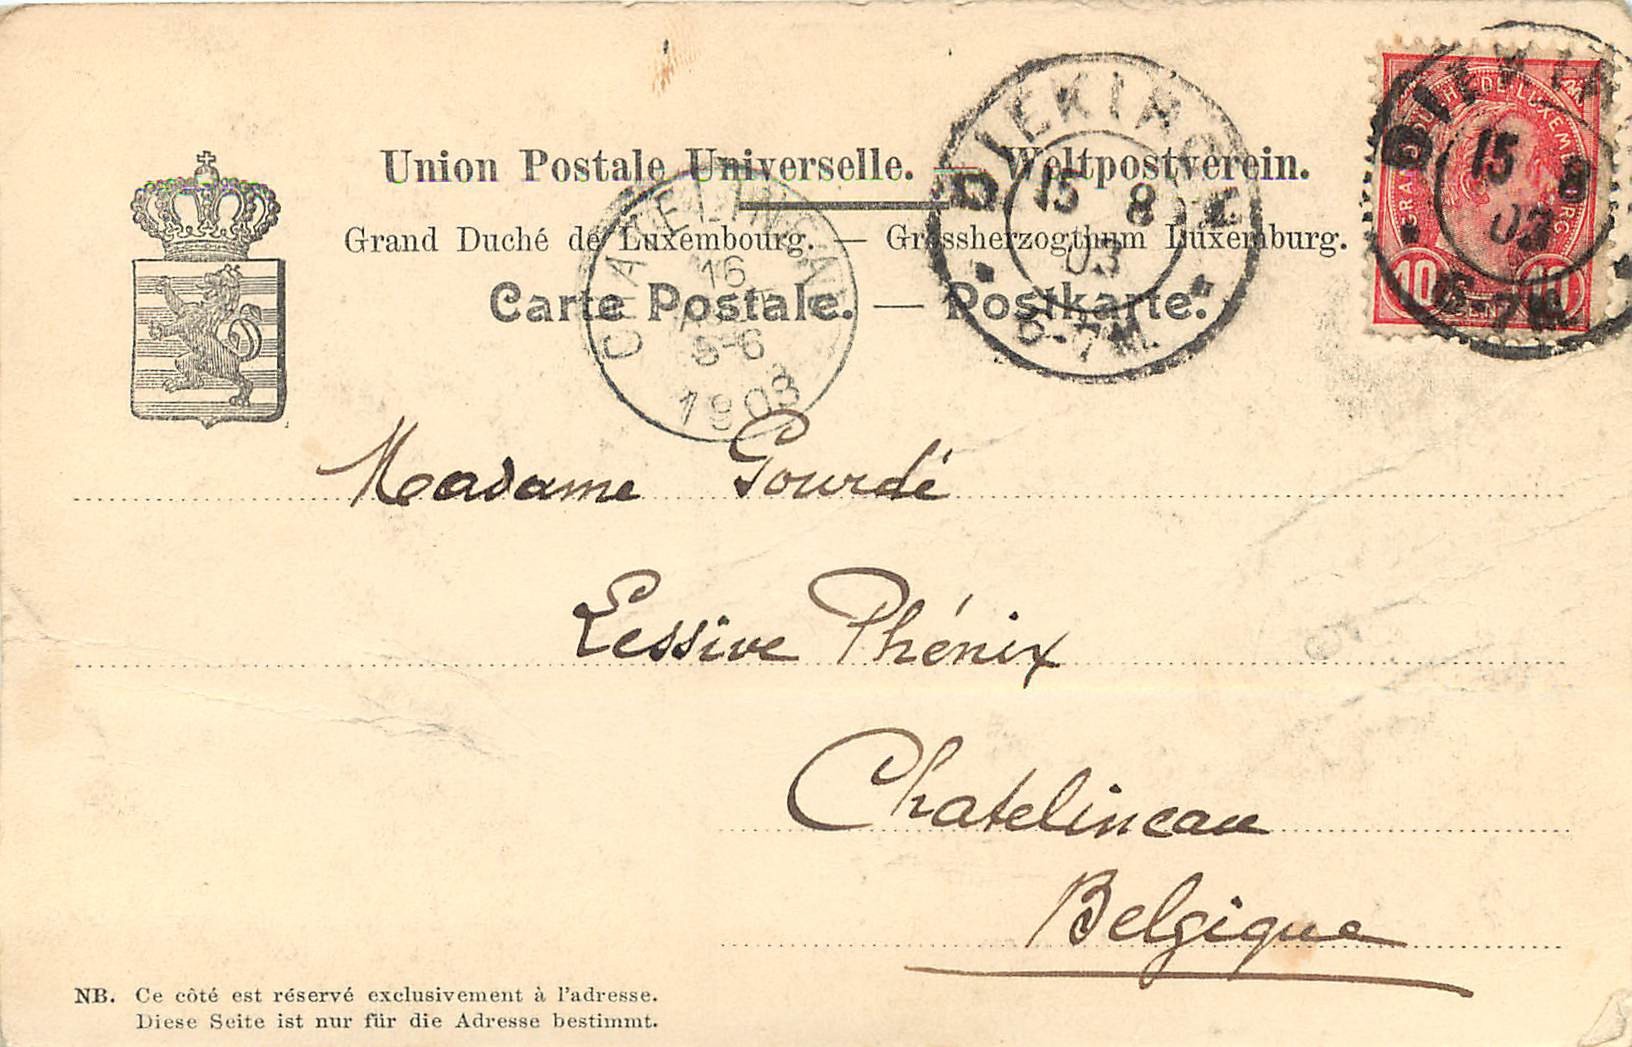 Union Postale Universelle. — Weltpostverein.
Grand Duché de Luxembourg. — Grossherzogthum Luxemburg.
Carte Postale. — Postkarte.
CHATELINEAU
16
5-6
1903
DIEKIRCH
15 8
03
6-7 M.
DIEKIRCH
15 8
03
6-7 M.
GRAND DUCHÉ DE LUXEMBOURG
10 10
Madame Gourdé
Lessive Phénix
Chatelineau
Belgique
NB. Ce côté est réservé exclusivement à l'adresse.
Diese Seite ist nur für die Adresse bestimmt.